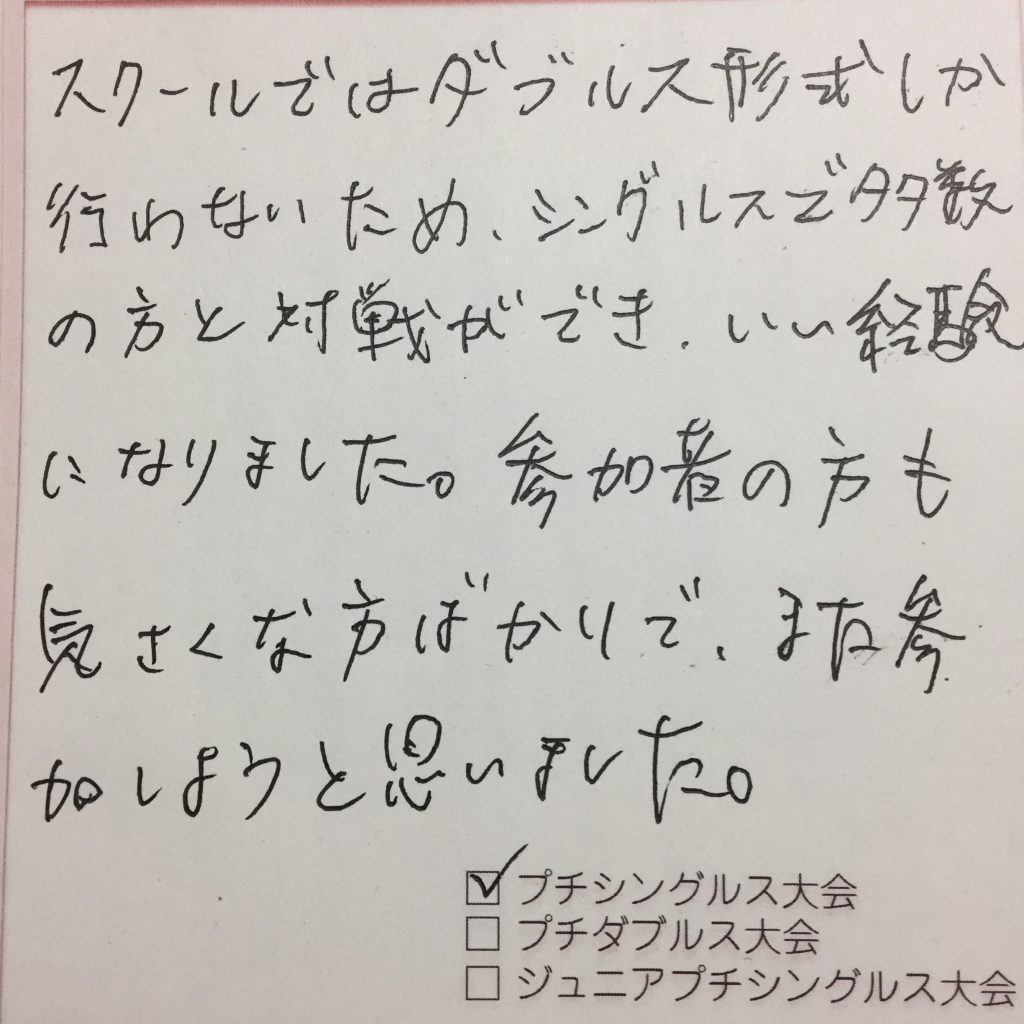 スクールではダブルス形式しか
行わないため、シングルスで多数
の方と対戦ができ、いい経験
になりました。参加者の方も
気さくな方ばかりで、また参
加しようと思いました。
☑プチシングルス大会
□プチダブルス大会
□ジュニアプチシングルス大会